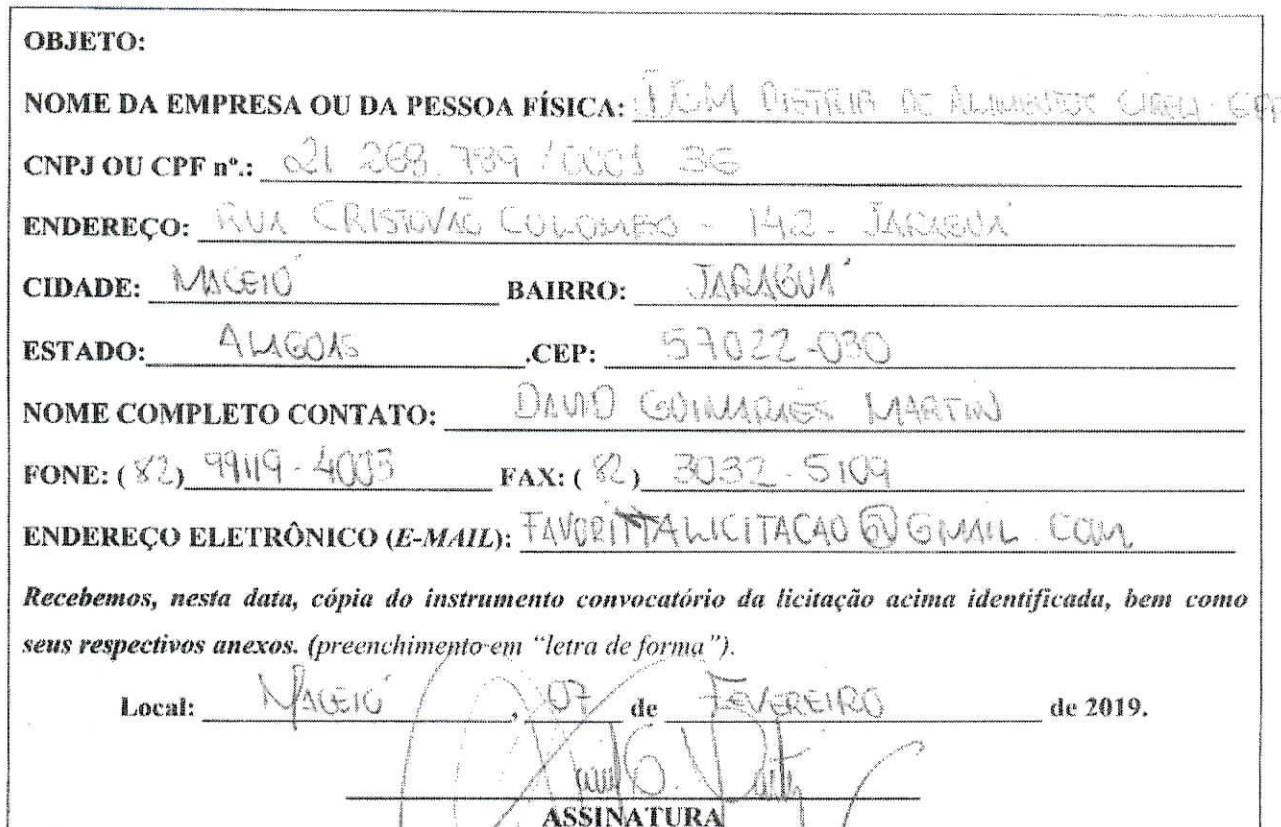 OBJETO:
NOME DA EMPRESA OU DA PESSOA FÍSICA: DISTRIB DE ALIMENTOS
CNPJ OU CPF nº.: 21 268.789 /0001 36
ENDEREÇO: RUA CRISTOVÃO COLOMBO - 142 - JARAGUÁ
CIDADE: MACEIÓ BAIRRO: JARAGUÁ
ESTADO: ALAGOAS .CEP: 57022-030
NOME COMPLETO CONTATO: DAVID GUIMARAES MARTIN
FONE: (82) 99119-4003 FAX: (82) 3032-5109
ENDEREÇO ELETRÔNICO (E-MAIL): FAVORITTALICITACAO@GMAIL.COM
Recebemos, nesta data, cópia do instrumento convocatório da licitação acima identificada, bem como
seus respectivos anexos. (preenchimento em "letra de forma").
Local: MACEIÓ, 07 de FEVEREIRO de 2019.
ASSINATURA